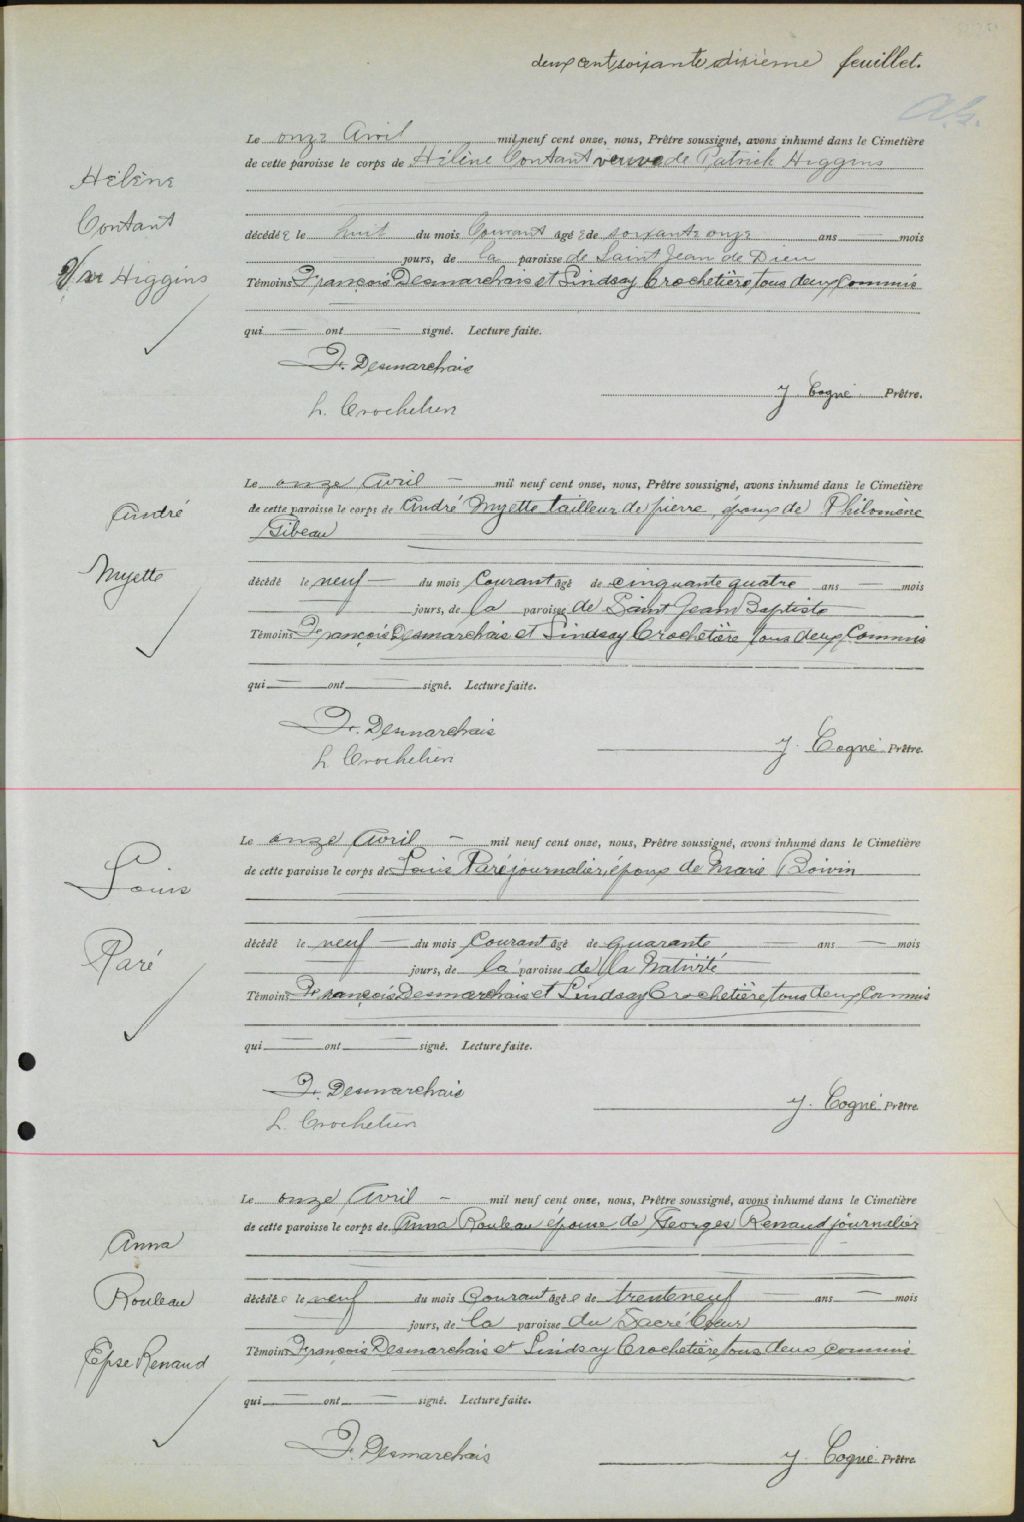 deux cent soixante dixième feuillet.
Le onze Avril mil neuf cent onze, nous, Prêtre soussigné, avons inhumé dans le Cimetière
de cette paroisse le corps de Hélène Contant veuve de Patrick Higgins
Hélène
Contant
Vve Higgins
décédée le huit du mois Courant âgée de soixante onze ans — mois
jours, de la paroisse de Saint Jean de Dieu
Témoins François Desmarchais et Lindsay Crochetière tous deux Commis
qui — ont — signé. Lecture faite.
F. Desmarchais
J. Cogné Prêtre.
L. Crochetière
Le onze Avril — mil neuf cent onze, nous, Prêtre soussigné, avons inhumé dans le Cimetière
de cette paroisse le corps de André Myette tailleur de pierre, époux de Philomène
Gibeau
André
Myette
décédé le neuf — du mois Courant âgé de cinquante quatre ans — mois
jours, de la paroisse de Saint Jean Baptiste
Témoins François Desmarchais et Lindsay Crochetière tous deux Commis
qui — ont — signé. Lecture faite.
F. Desmarchais
J. Cogné Prêtre.
L. Crochetière
Le onze Avril — mil neuf cent onze, nous, Prêtre soussigné, avons inhumé dans le Cimetière
de cette paroisse le corps de Louis Paré journalier, époux de Marie Boivin
Louis
Paré
décédé le neuf — du mois Courant âgé de quarante — ans — mois
jours, de la paroisse de la Nativité
Témoins François Desmarchais et Lindsay Crochetière tous deux Commis
qui — ont — signé. Lecture faite.
F. Desmarchais
J. Cogné Prêtre.
L. Crochetière
Le onze Avril — mil neuf cent onze, nous, Prêtre soussigné, avons inhumé dans le Cimetière
de cette paroisse le corps de Anna Rouleau épouse de Georges Renaud journalier
Anna
Rouleau
Epse Renaud
décédée le neuf du mois Courant âgée de trente neuf — ans — mois
jours, de la paroisse du Sacré Coeur
Témoins François Desmarchais et Lindsay Crochetière tous deux commis
qui — ont — signé. Lecture faite.
F. Desmarchais
J. Cogné Prêtre.